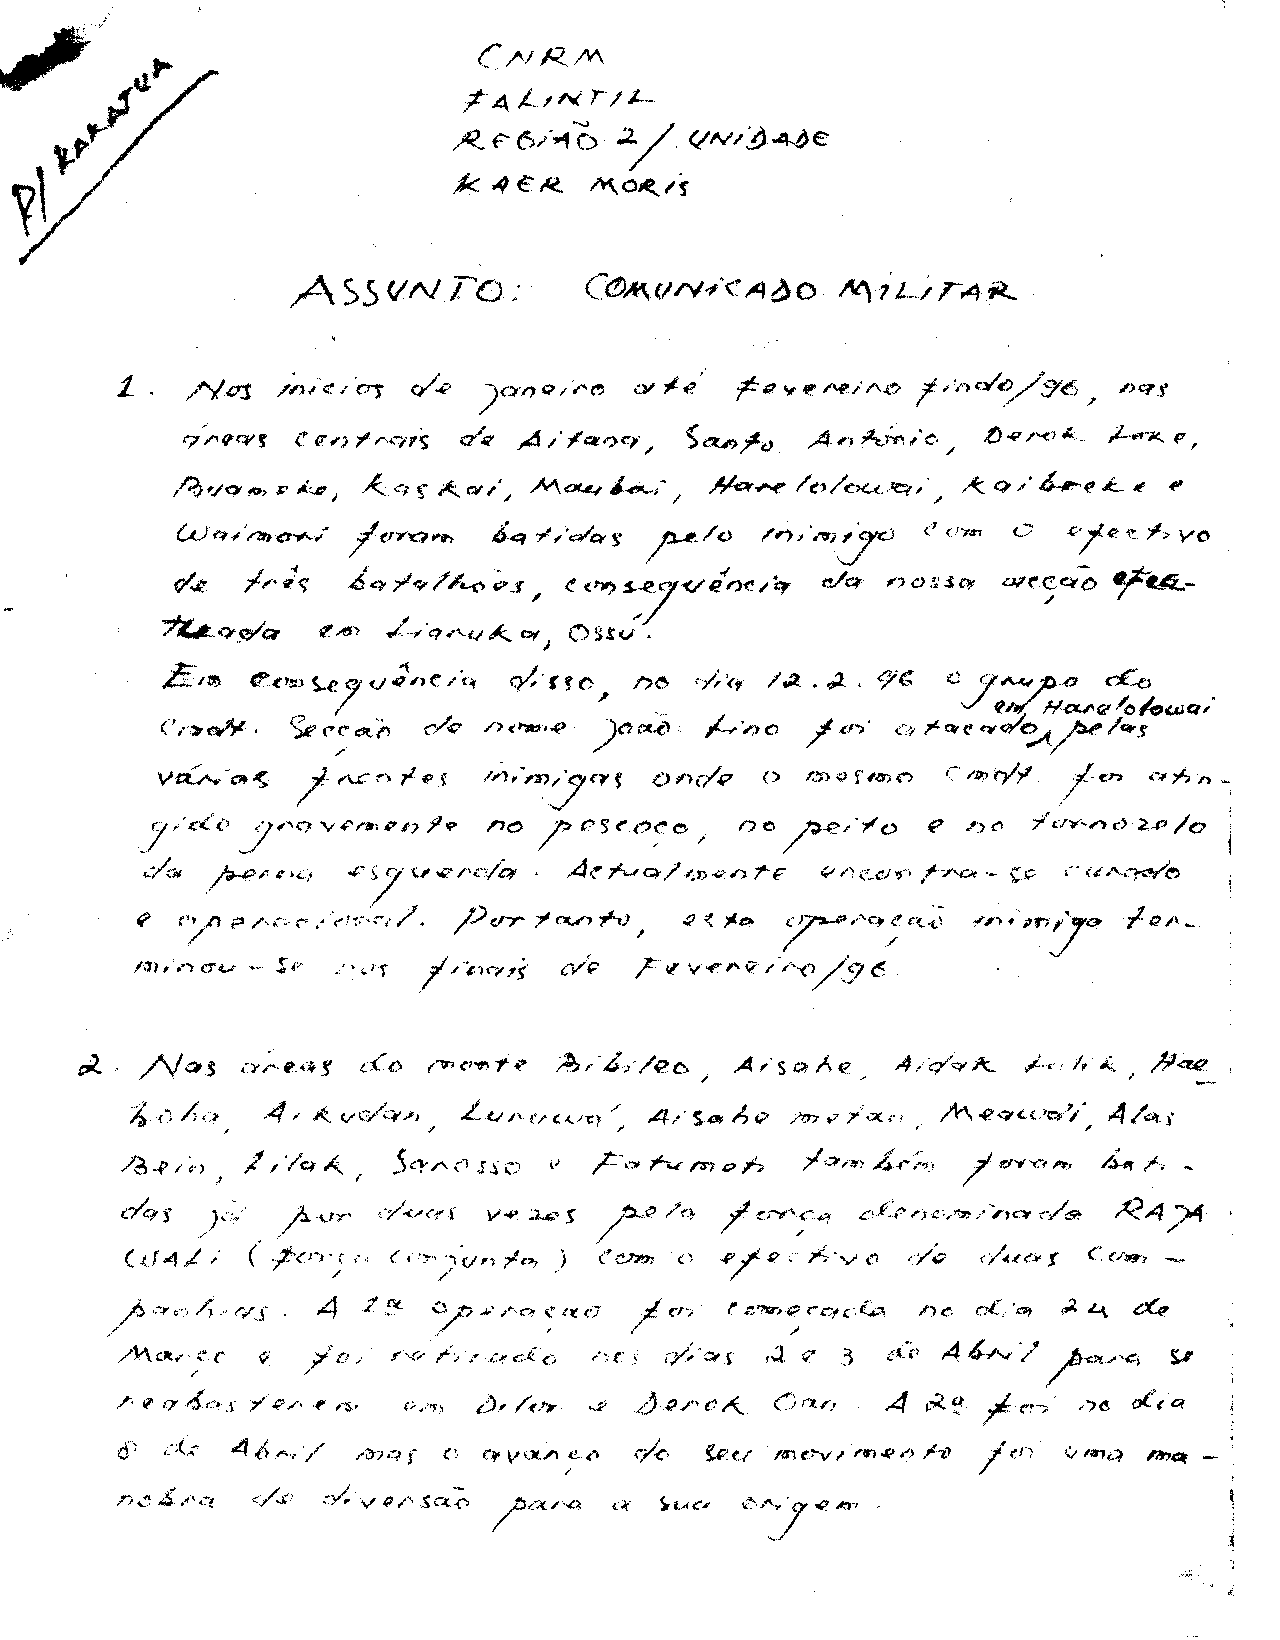 P/ KARATUA
CNRM
FALINTIL
REGIÃO 2/ UNIDADE
KAER MORIS
ASSUNTO: COMUNICADO MILITAR
1. Nos inícios de janeiro até fevereiro findo/96, nas
áreas centrais de Aitana, Santo António, Derok Lake,
Buameke, Kaskai, Maubai, Harelolowai, Kaibreke e
Waimori foram batidas pelo inimigo com o efectivo
de três batalhões, consequência da nossa acção efec-
tuada em Liaruka, Ossú.
Em consequência disso, no dia 12.2.96 o grupo do
Cmdt. Secção de nome João Lino foi atacado em Harelolowai pelas
várias frentes inimigas onde o mesmo Cmdt. foi atin-
gido gravemente no pescoço, no peito e no tornozelo
da perna esquerda. Actualmente encontra-se curado
e operacional. Portanto, esta operação inimiga ter-
minou-se nos finais de Fevereiro/96.
2. Nas áreas do monte Bibileo, Aisahe, Aidak Lulik, Hae
boho, Aikudan, Luruwa, Aisahe metan, Meawai, Alas
Bein, Lilak, Sarosso e Fatumoti também foram bati-
das já por duas vezes pela força denominada RAJA
WALI (força conjunta) com o efectivo de duas Com-
panhias. A 1ª operação foi começada no dia 24 de
Março e foi retirado nos dias 2 e 3 de Abril para se
reabasterem em Dilor e Derok Oan. A 2ª foi no dia
8 de Abril mas o avanço do seu movimento foi uma ma-
nobra de diversão para a sua origem.